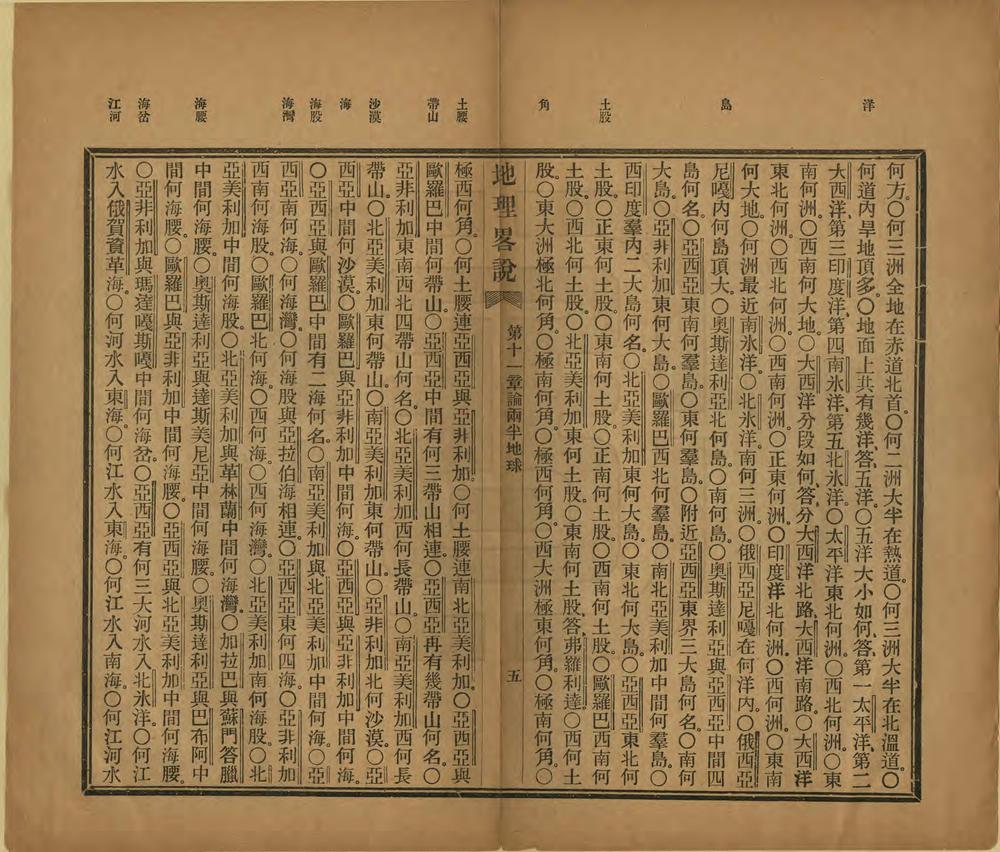 洋
島
土股
角
何方。〇何三洲全地在赤道北首。〇何二洲大半在熱道。〇何三洲大半在北溫道。〇
何道內旱地頂多。〇地面上共有幾洋、答、五洋。〇五洋大小如何、答、第一太平洋、第二
大西洋、第三印度洋、第四南氷洋、第五北氷洋。〇太平洋東北何洲。〇西北何洲。〇東
南何洲。〇西南何大地。〇大西洋分段如何、答、分大西洋北路、大西洋南路。〇大西洋
東北何洲。〇西北何洲。〇西南何洲。〇正東何洲。〇印度洋北何洲。〇西何洲。〇東南
何大地。〇何洲最近南氷洋。〇北氷洋南何三洲。〇俄西亞尼嘎在何洋內。〇俄西亞
尼嘎內何島頂大。〇奧斯達利亞北何島。〇南何島。〇奧斯達利亞與亞西亞中間四
島何名。〇亞西亞東南何羣島。〇東何羣島。〇附近亞西亞東界三大島何名。〇南何
大島。〇亞非利加東何大島。〇歐羅巴西北何羣島。〇南北亞美利加中間何羣島。〇
西印度羣內二大島何名。〇北亞美利加東何大島。〇東北何大島。〇亞西亞東北何
土股。〇正東何土股。〇東南何土股。〇正南何土股。〇西南何土股。〇歐羅巴西南何
土股。〇西北何土股。〇北亞美利加東何土股。〇東南何土股、答、弗羅利達。〇西何土
股。〇東大洲極北何角。〇極南何角。〇極西何角。〇西大洲極東何角。〇極南何角。〇
地理畧說 第十一章論兩半地球 五
土腰
帶山
沙漠
海
海股
海灣
海腰
海岔
江河
極西何角。〇何土腰連亞西亞與亞非利加。〇何土腰連南北亞美利加。〇亞西亞與
歐羅巴中間何帶山。〇亞西亞中間有何三帶山相連。〇亞西亞再有幾帶山何名。〇
亞非利加東南西北四帶山何名。〇北亞美利加西何長帶山。〇南亞美利加西何長
帶山。〇北亞美利加東何帶山。〇南亞美利加東何帶山。〇亞非利加北何沙漠。〇亞
西亞中間何沙漠。〇歐羅巴與亞非利加中間何海。〇亞西亞與亞非利加中間何海。
〇亞西亞與歐羅巴中間有二海何名。〇南亞美利加與北亞美利加中間何海。〇亞
西亞南何海。〇何海灣。〇何海股與亞拉伯海相連。〇亞西亞東何四海。〇亞非利加
西南何海股。〇歐羅巴北何海。〇西何海。〇西何海灣。〇北亞美利加南何海股。〇北
亞美利加中間何海股。〇北亞美利加與革林蘭中間何海灣。〇加拉巴與蘇門答臘
中間何海腰。〇奧斯達利亞與達斯美尼亞中間何海腰。〇奧斯達利亞與巴布阿中
間何海腰。〇歐羅巴與亞非利加中間何海腰。〇亞西亞與北亞美利加中間何海腰。
〇亞非利加與瑪達嘎斯嘎中間何海岔。〇亞西亞有何三大河水入北氷洋。〇何江
水入俄賀資革海。〇何河水入東海。〇何江水入東海。〇何江水入南海。〇何江河水